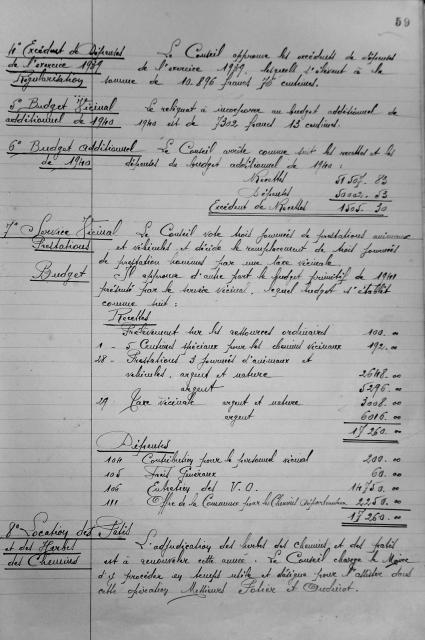 59
4° Excédent de Dépenses Le Conseil approuve les excédents de dépenses
de l'exercice 1939 de l'exercice 1939, lesquels s'élèvent à la
Régularisation somme de 10.896 francs 76 centimes.
5° Budget Vicinal Le reliquat à incorporer au budget additionnel de
additionnel de 1940 1940 est de 7302 francs 13 centimes.
6° Budget additionnel Le Conseil arrête comme suit les recettes et les
de 1940 dépenses du budget additionnel de 1940 :
Recettes 51507.83
Dépenses 50002.53
Excédent de Recettes 1505.30
7° Service Vicinal Le Conseil vote trois journées de prestations animaux
Prestations et véhicules et décide le remplacement de trois journées
de prestation hommes par une taxe vicinale.
Budget Il approuve d'autre part le budget primitif de 1941
présenté par le service vicinal, lequel budget s'établit
comme suit :
Recettes
Prélèvement sur les ressources ordinaires 100.00
1 - 5 Centimes spéciaux pour les chemins vicinaux 192.00
28 - Prestations 3 journées d'animaux et
véhicules, argent et nature 2648.00
argent 5296.00
29 Taxe vicinale argent et nature 3008.00
argent 6016.00
17260.00
Dépenses
104 Contribution pour le personnel vicinal 200.00
105 Frais Généraux 60.00
106 Entretien des V.O. 14750.00
111 Offre de la Commune pour les Chemins Départementaux 2250.00
17260.00
8° Location des Patis
et des Herbes L'adjudication des herbes des chemins et des patis
des Chemins est à renouveler cette année. Le Conseil charge le Maire
d'y procéder en temps utile et désigne pour l'assister dans
cette opération Messieurs et